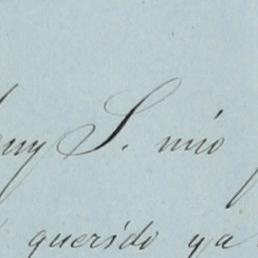 muy S. mio
querido ya